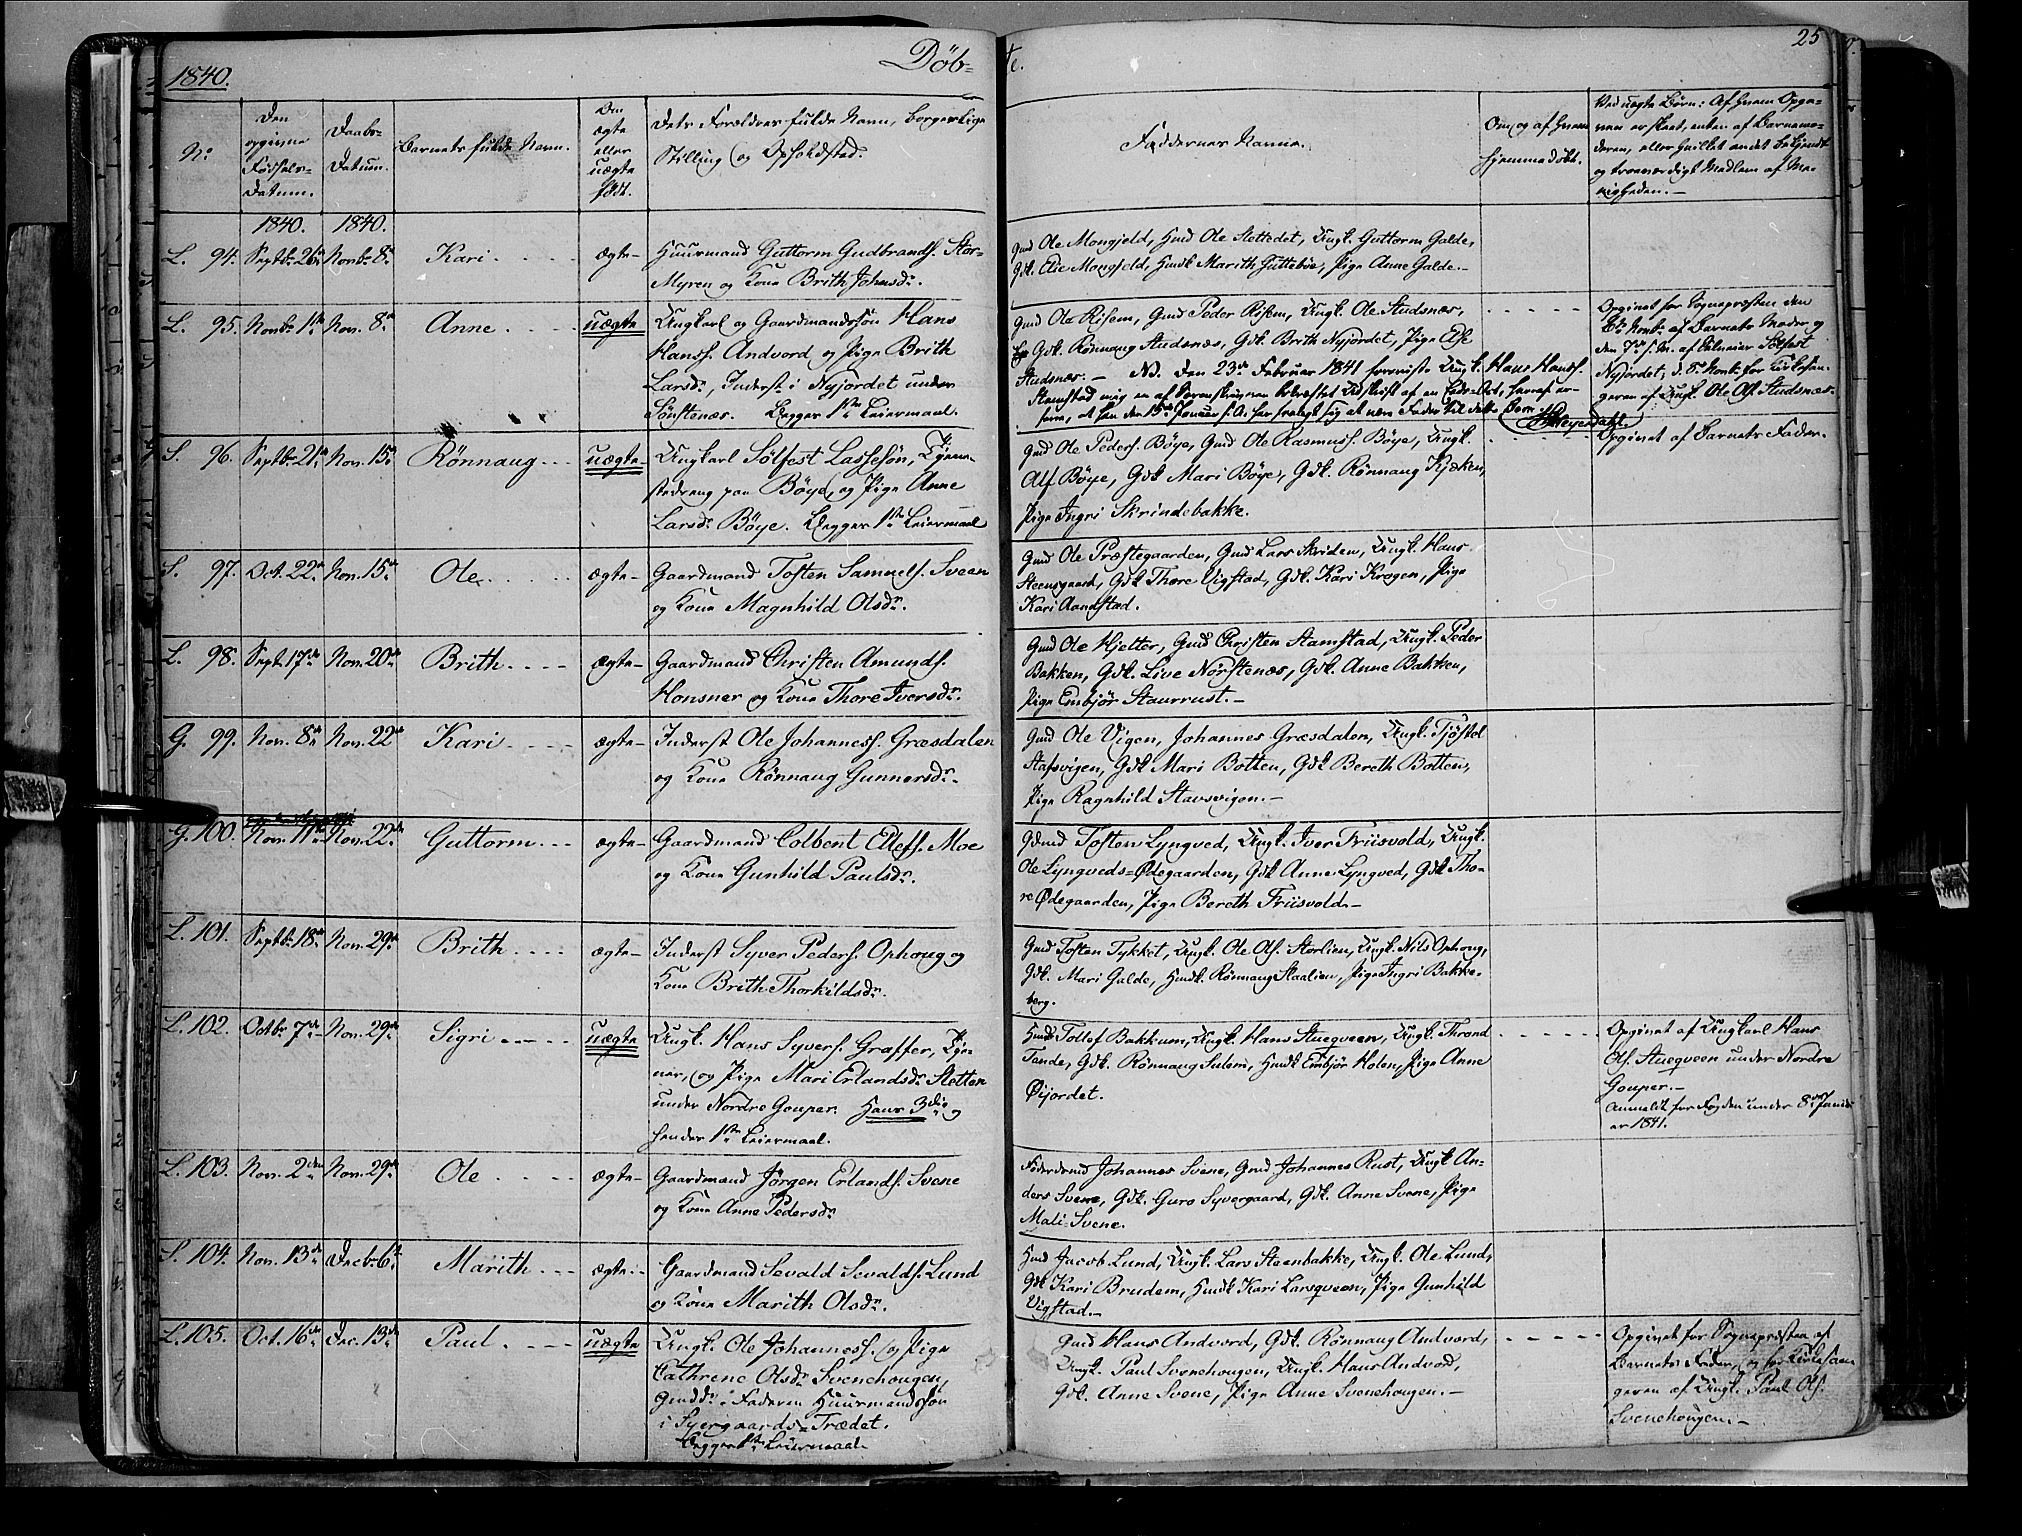 1840.
Döb-
te.
25
No
Den
opgivne
Fødsels-
Datum.
Daabs-
Datum.
Barnets fulde Navn.
Om
ægte
eller
uægte
født.
Dets Forældres fulde Navn, borgerlige
Stilling og Opholdsted.
Faddernes Navne.
Om og af hvem
hjemmedøbt.
Ved uægte Børn: Af hvem Opgi-
ven er skeet, enten af Barnemo-
deren, eller hvilket andet bekjendt
og troeværdigt Medlem af Me-
nigheden.-
1840.
1840.
L. 94.
Septb. 26de
Novb. 8de
Kari
ægte-
Huusmand Guttorm Gudbrands. Stor-
Myren og Kone Brith Johnsdr.
Gmd Ole Mongjeld, Hmd Ole Slettedet, Ungk. Guttorm Galde,
Gdk. Elie Mongjeld, Hmdk Marith Tuttebøe, Pige Anne Galde.-
L. 95.
Novb. 1ste
Nov. 8de
Anne
uægte
Ungkarl og Gaardmandssøn Hans
Hanss. Andvord og Pige Brith
Larsdr, Inderst i Nyjordet under
Sönstenæs. Begges 1ste Leiermaal.
Gmd Ole Risem, Gmd Peder Risem, Ungk. Ole Studsnæs,
Gdk. Rønnaug Studsnæs, Gdk. Brith Nyjordet, Pige Else
Studsnæs.- NB. Den 23de Februar 1841 foreviste Ungk. Hans Hanss.
Stamstad mig en af Sorenskriveren bekræftet Udskrift af en Eeds-Act, hvoraf er-
fares, at han den 15de Januar s. A. har fralagt sig at være Fader til dette Barn.
Opgivet for Sognepræsten den
Novb. af Barnets Moder og
den 7de s. M. af Selveier Sölfest
Nyjordet; d. 8de Novb. for Kirkesan-
geren af Ungk. Ole Ols. Studsnæs.
S. 96.
Septb. 21de
Nov. 15de
Rönnaug
uægte-
Ungkarl Sölfest Lassesön, Tjene-
stedreng paa Böye, og Pige Anne
Larsdr Böye. Begges 1ste Leiermaal
Gmd Ole Peders. Böye, Gmd Ole Rasmuss. Böye, Ungk.
Alf Böye, Gdk Mari Böye, Gdk. Rönnaug Kjæken,
Pige Ingri Skrindebakke.
Opgivet af Barnets Fader.
S. 97.
Oct. 22de
Nov. 15de
Ole
ægte-
Gaardmand Tosten Samuels. Sveen
og Kone Magnhild Olsdr.
Gmd Ole Præstegaarden, Gmd Lars Skriden, Ungk. Hans
Steensgaard, Gdk Thore Vigstad, Gdk. Kari Krogen, Pige
Kari Aandstad.
L. 98.
Sept. 17de
Nov. 20de
Brith
ægte-
Gaardmand Christen Amunds.
Honsner og Kone Thore Iversdr.
Gmd Ole Hjelter, Gmd Christen Stamstad, Ungk. Peder
Bakken, Gdk. Live Nörstenæs, Gdk. Anne Bakken,
Pige Embjör Staurrust.-
G. 99.
Nov. 8de
Nov. 22de
Kari
ægte-
Inderst Ole Johanness. Græsdalen
og Kone Rönnaug Gunnersdr.
Gmd Ole Vigen, Johannes Græsdalen, Ungk. Tjöstel
Stafsvigen, Gdk Mari Botten, Gdk Bereth Botten,
Pige Ragnhild Stavsvigen.-
G. 100.
Nov. 11te
Nov. 22de
Guttorm
ægte-
Gaardmand Colbent Ellefs. Moe
og Kone Gunhild Paulsdr.
Gdmd Tosten Lyngved, Ungk. Iver Friisvold, Ungk.
Ole Lyngveds-Ødegaarden, Gdk Anne Lyngved, Gdk Tho-
re Ødegaarden, Pige Bereth Friisvold.-
L. 101.
Septb. 18de
Nov. 29de
Brith
ægte-
Inderst Syver Peders. Ophoug og
Kone Brith Thorkildsdr.
Gmd Tosten Tykket, Ungk. Ole Ols. Storlien, Ungk. Nils Ophoug,
Gdk. Mari Galde, Hmdk. Rönnaug Staalien, Pige Ingri Bakke-
berg.
L. 102.
Octbr 7de
Nov. 29de
Sigri
uægte
Ungk. Hans Syvers. Graffer, Tje-
ner, og Pige Mari Erlandsdr Sletten
under Nordre Gouper. Hans 3die og
hendes 1ste Leiermaal.
Hmd Tollef Bakkum, Ungk. Hans Stueqveen, Ungk. Thrond
Tande, Gdk. Rönnaug Sulem, Hmdk Embjör Holen, Pige Anne
Öijordet.
Opgivet af Ungkarl Hans
Ols. Stueqveen under Nordre
Gouper.-
Anmeldt for Fogden under 8de Janu-
ar 1841.
L. 103.
Nov. 2den
Nov. 29de
Ole
ægte-
Gaardmand Jörgen Erlands. Svene
og Kone Anne Pedersdr
Föderaadmd Johannes Svene, Gmd Johannes Rust, Ungk An-
ders Svene, Gdk. Guro Syvergaard, Gdk. Anne Svene, Pige
Mali Svene.
S. 104.
Nov. 13de
Decb. 6te
Marith
ægte.-
Gaardmand Sevald Sevalds. Lund
og Kone Marith Olsdr.
Hmd Jacob Lund, Ungk. Lars Steenbakke, Ungk. Ole Lund,
Gdk Kari Brudem, Hmdk Kari Larsqveen, Pige Gunhild
Vigstad.-
L. 105.
Oct. 16de
Dec. 13de
Paul
uægte
Ungk. Ole Johanness. og Pige
Cathrine Olsdr. Svenehougen,
Gmddr. Faderen Huusmandssön
i Syvergaards-Trædet.
Begges 1ste Leiermaal.
Gmd Hans Andvord, Gdk. Rönnaug Andvord,
Ungk. Paul Svenehougen, Ungk. Hans Andvord,
Gdk. Anne Svene, Pige Anne Svenehougen.-
Opgivet for Sognepræsten af
Barnets Fader, og for Kirkesan-
geren af Ungk. Paul Ols.
Svenehougen.-